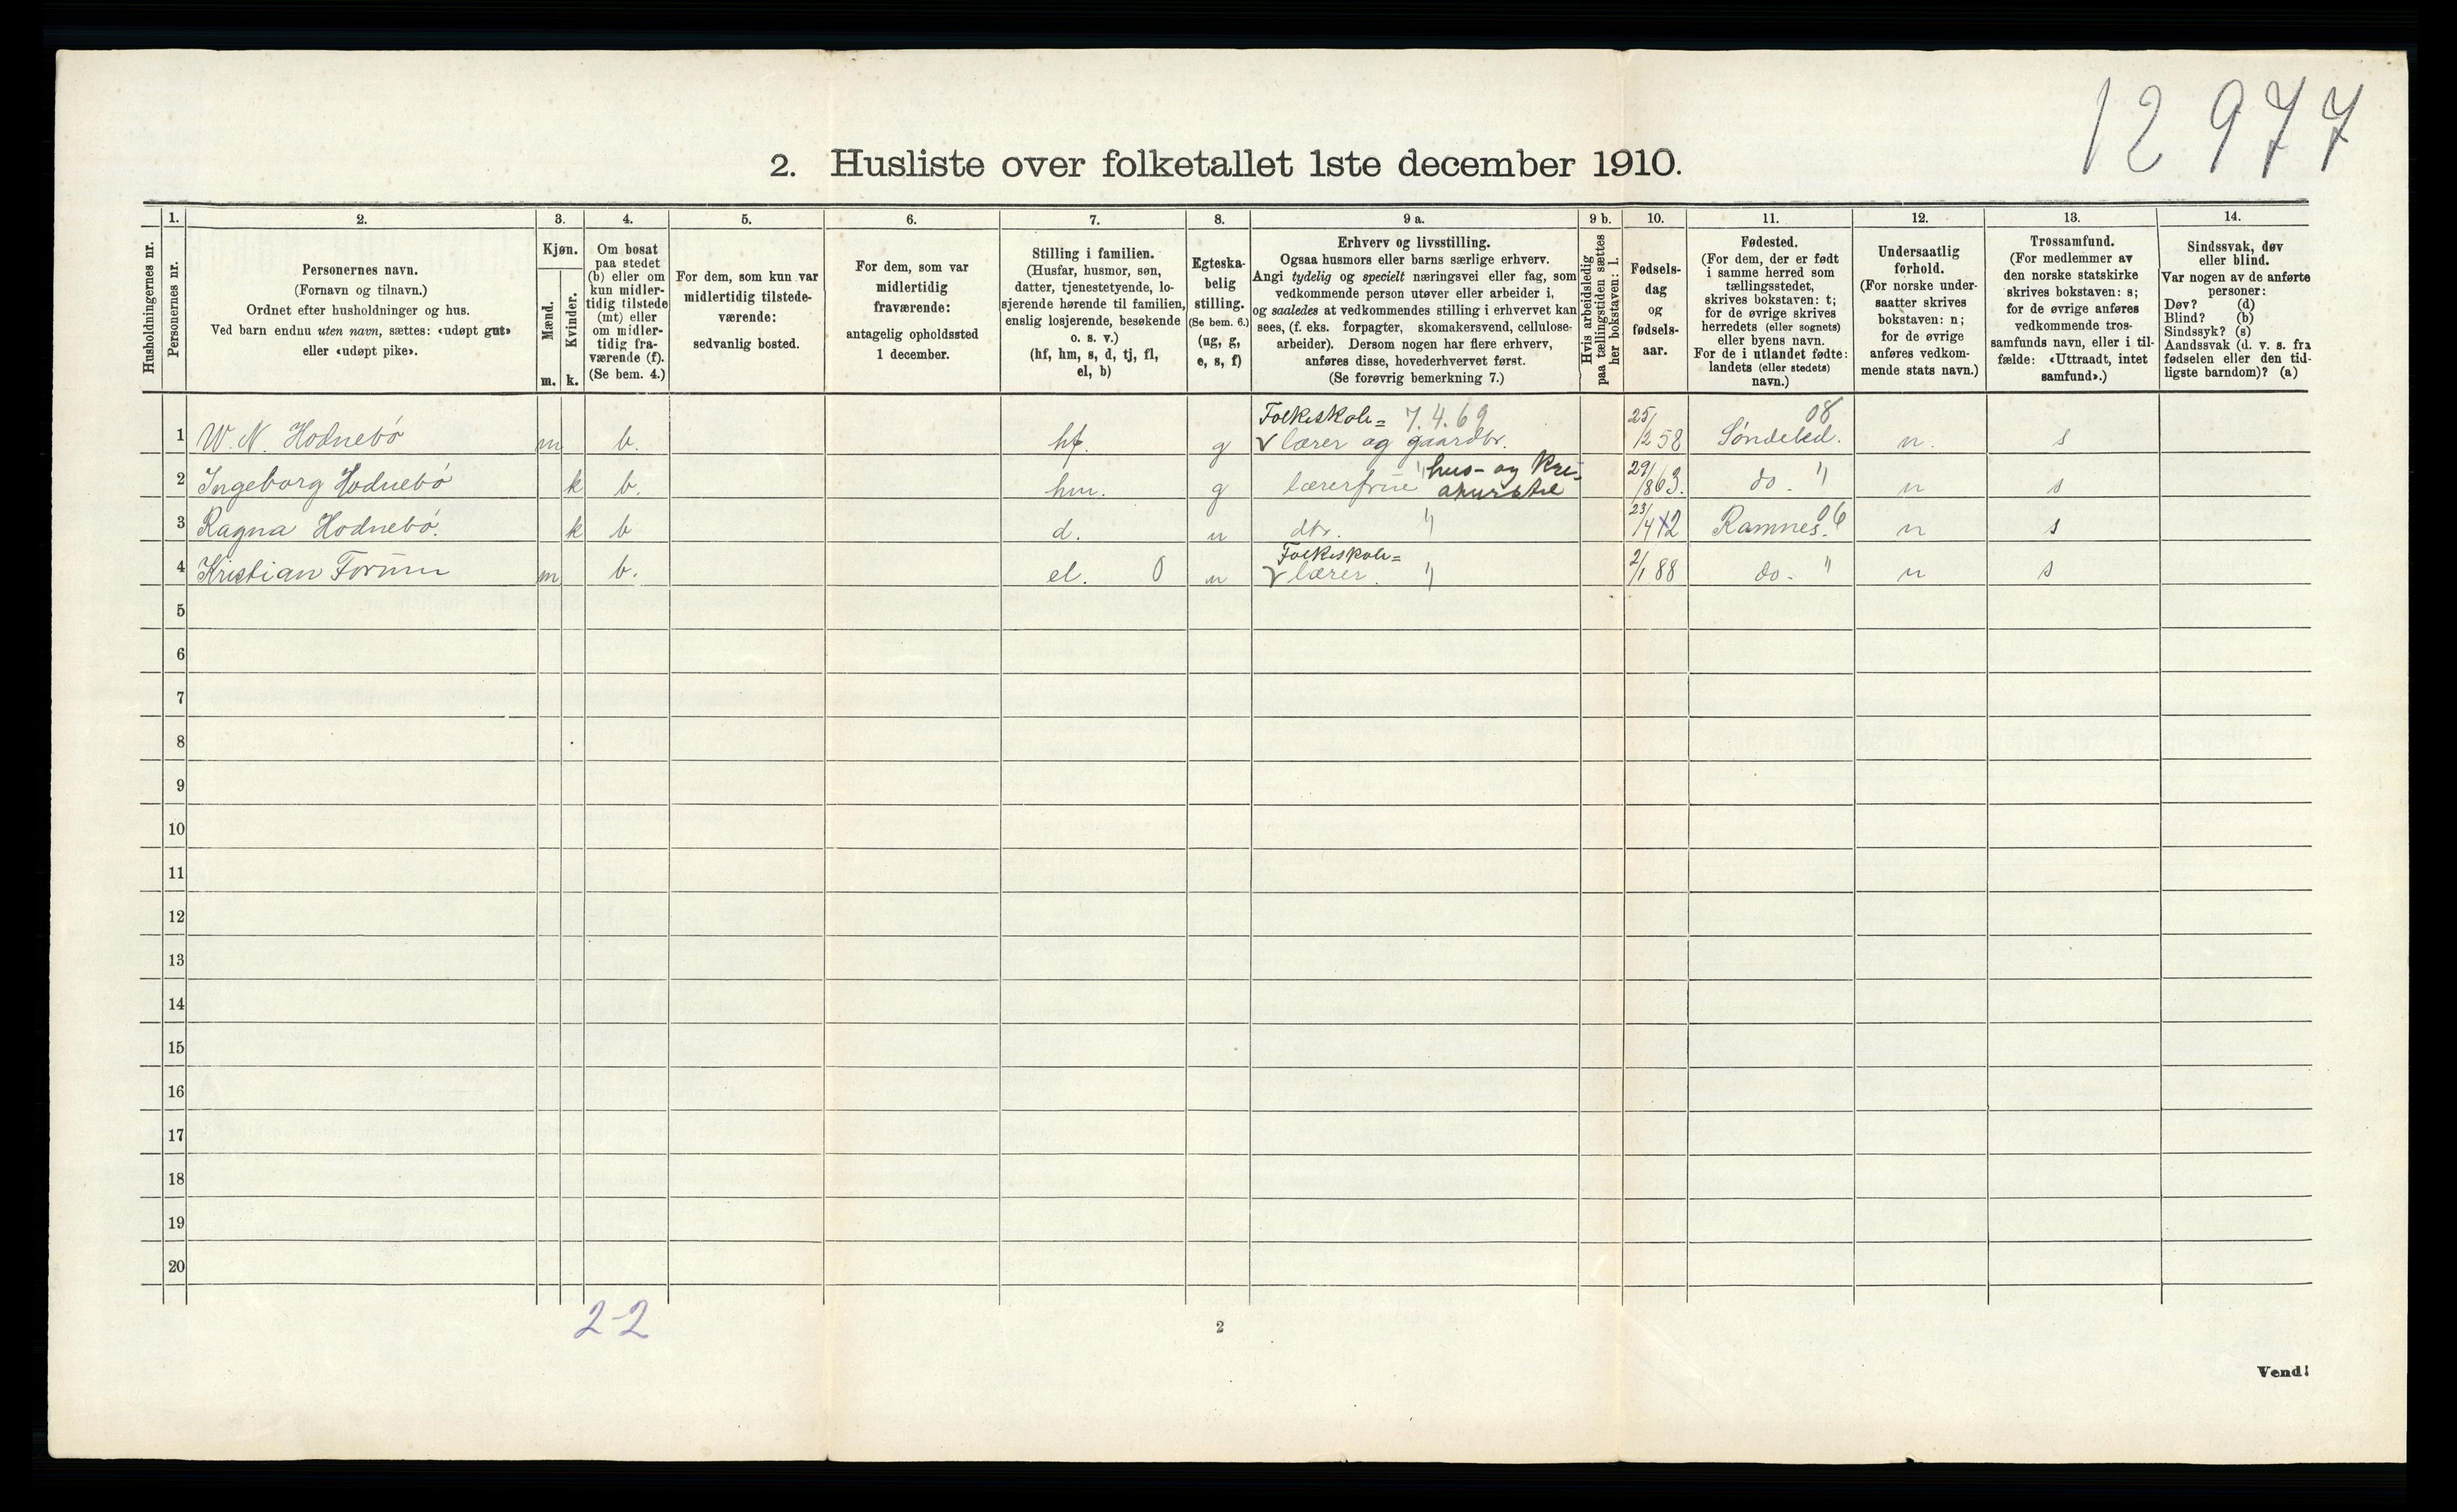 12 977
2. Husliste over folketallet 1ste december 1910.
Husholdningernes nr.
1.
Personernes nr.
2.
Personernes navn.
(Fornavn og tilnavn.)
Ordnet efter husholdninger og hus.
Ved barn endnu uten navn, sættes: «udøpt gut»
eller «udøpt pike».
3.
Kjøn.
Mænd.
Kvinder.
m. k.
4.
Om bosat
paa stedet
(b) eller om
kun midler-
tidig tilstede
(mt) eller
om midler-
tidig fra-
værende (f).
(Se bem. 4.)
5.
For dem, som kun var
midlertidig tilstede-
værende:
sedvanlig bosted.
6.
For dem, som var
midlertidig
fraværende:
antagelig opholdssted
1 december.
7.
Stilling i familien.
(Husfar, husmor, søn,
datter, tjenestetyende, lo-
sjerende hørende til familien,
enslig losjerende, besøkende
o. s. v.)
(hf, hm, s, d, tj, fl,
el, b)
8.
Egteska-
belig
stilling.
(Se bem. 6.)
(ug, g,
e, s, f)
9 a.
Erhverv og livsstilling.
Ogsaa husmors eller barns særlige erhverv.
Angi tydelig og specielt næringsvei eller fag, som
vedkommende person utøver eller arbeider i,
og saaledes at vedkommendes stilling i erhvervet kan
sees, (f. eks. forpagter, skomakersvend, cellulose-
arbeider). Dersom nogen har flere erhverv,
anføres disse, hovederhvervet først.
(Se forøvrig bemerkning 7.)
9 b.
Hvis arbeidsledig
paa tællingstiden sættes
her bokstaven: l.
10.
Fødsels-
dag
og
fødsels-
aar.
11.
Fødested.
(For dem, der er født
i samme herred som
tællingsstedet,
skrives bokstaven: t;
for de øvrige skrives
herredets (eller sognets)
eller byens navn.
For de i utlandet fødte:
landets (eller stedets)
navn.)
12.
Undersaatlig
forhold.
(For norske under-
saatter skrives
bokstaven: n;
for de øvrige
anføres vedkom-
mende stats navn.)
13.
Trossamfund.
(For medlemmer av
den norske statskirke
skrives bokstaven: s;
for de øvrige anføres
vedkommende tros-
samfunds navn, eller i til-
fælde: «Uttraadt, intet
samfund».)
14.
Sindssvak, døv
eller blind.
Var nogen av de anførte
personer:
Døv? (d)
Blind? (b)
Sindssyk? (s)
Aandssvak (d. v. s. fra
fødselen eller den tid-
ligste barndom)? (a)
Folkeskole= 7.4.69 08
1 W. N. Hodnebö m b. hf. g lærer og gaardbr. 25/12 58 Söndeled. n. s
hus- og kre-
2 Ingeborg Hodnebö k b. hm. g lærerfrue " 29/8 63. do. " n s
3 Ragna Hodnebö. k b d. u dtr. " 23/4 Ramnes. 06 n s
Folkeskole=
4 Kristian Forum m b. el. 0 u lærer. " 2/1 88 do. " n s
5
6
7
8
9
10
11
12
13
14
15
16
17
18
19
20
2-2
2
Vend!